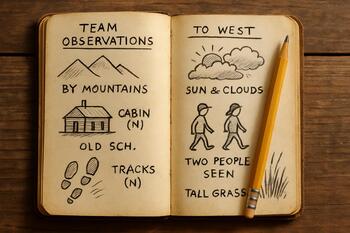 TEAM
OBSERVATIONS
BY MOUNTAINS
CABIN
(N)
OLD SCH.
TRACKS
(N)
TO WEST
SUN & CLOUDS
TWO PEOPLE
SEEN
TALL GRASS